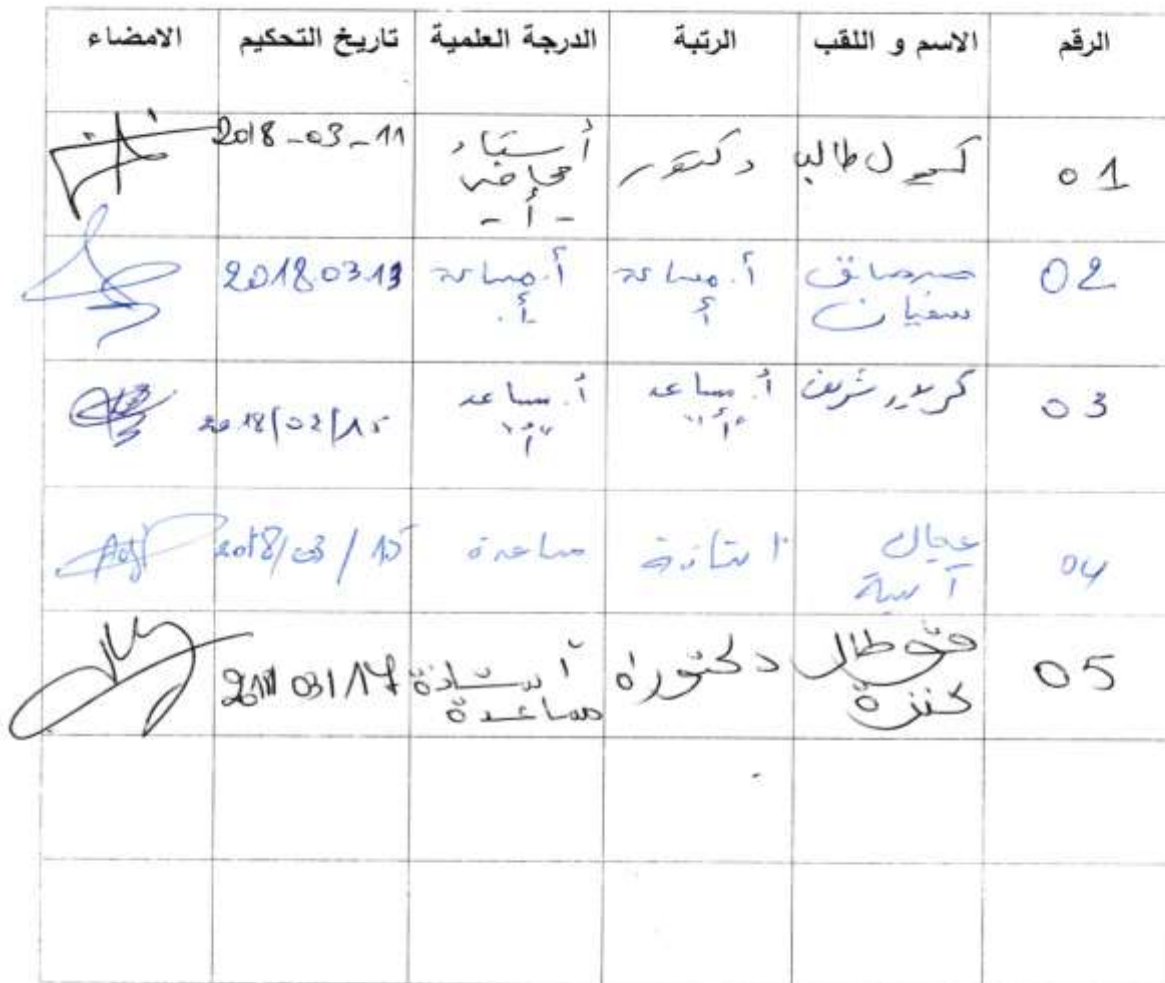 الرقم الاسم و اللقب الرتبة الدرجة العلمية تاريخ التحكيم الامضاء
01 كحول طالب دكتور أستاذ محاضر - أ - 2018-03-11
02 سفيان أ. مساعد أ أ. مساعد أ. 2018.03.13
03 شريف أ. مساعد "أ" أ. مساعد "أ" 2018/03/15
04 عجال آسية استاذة مساعدة 2018/03/15
05 كنزة دكتوراة أستاذة مساعدة 03/17